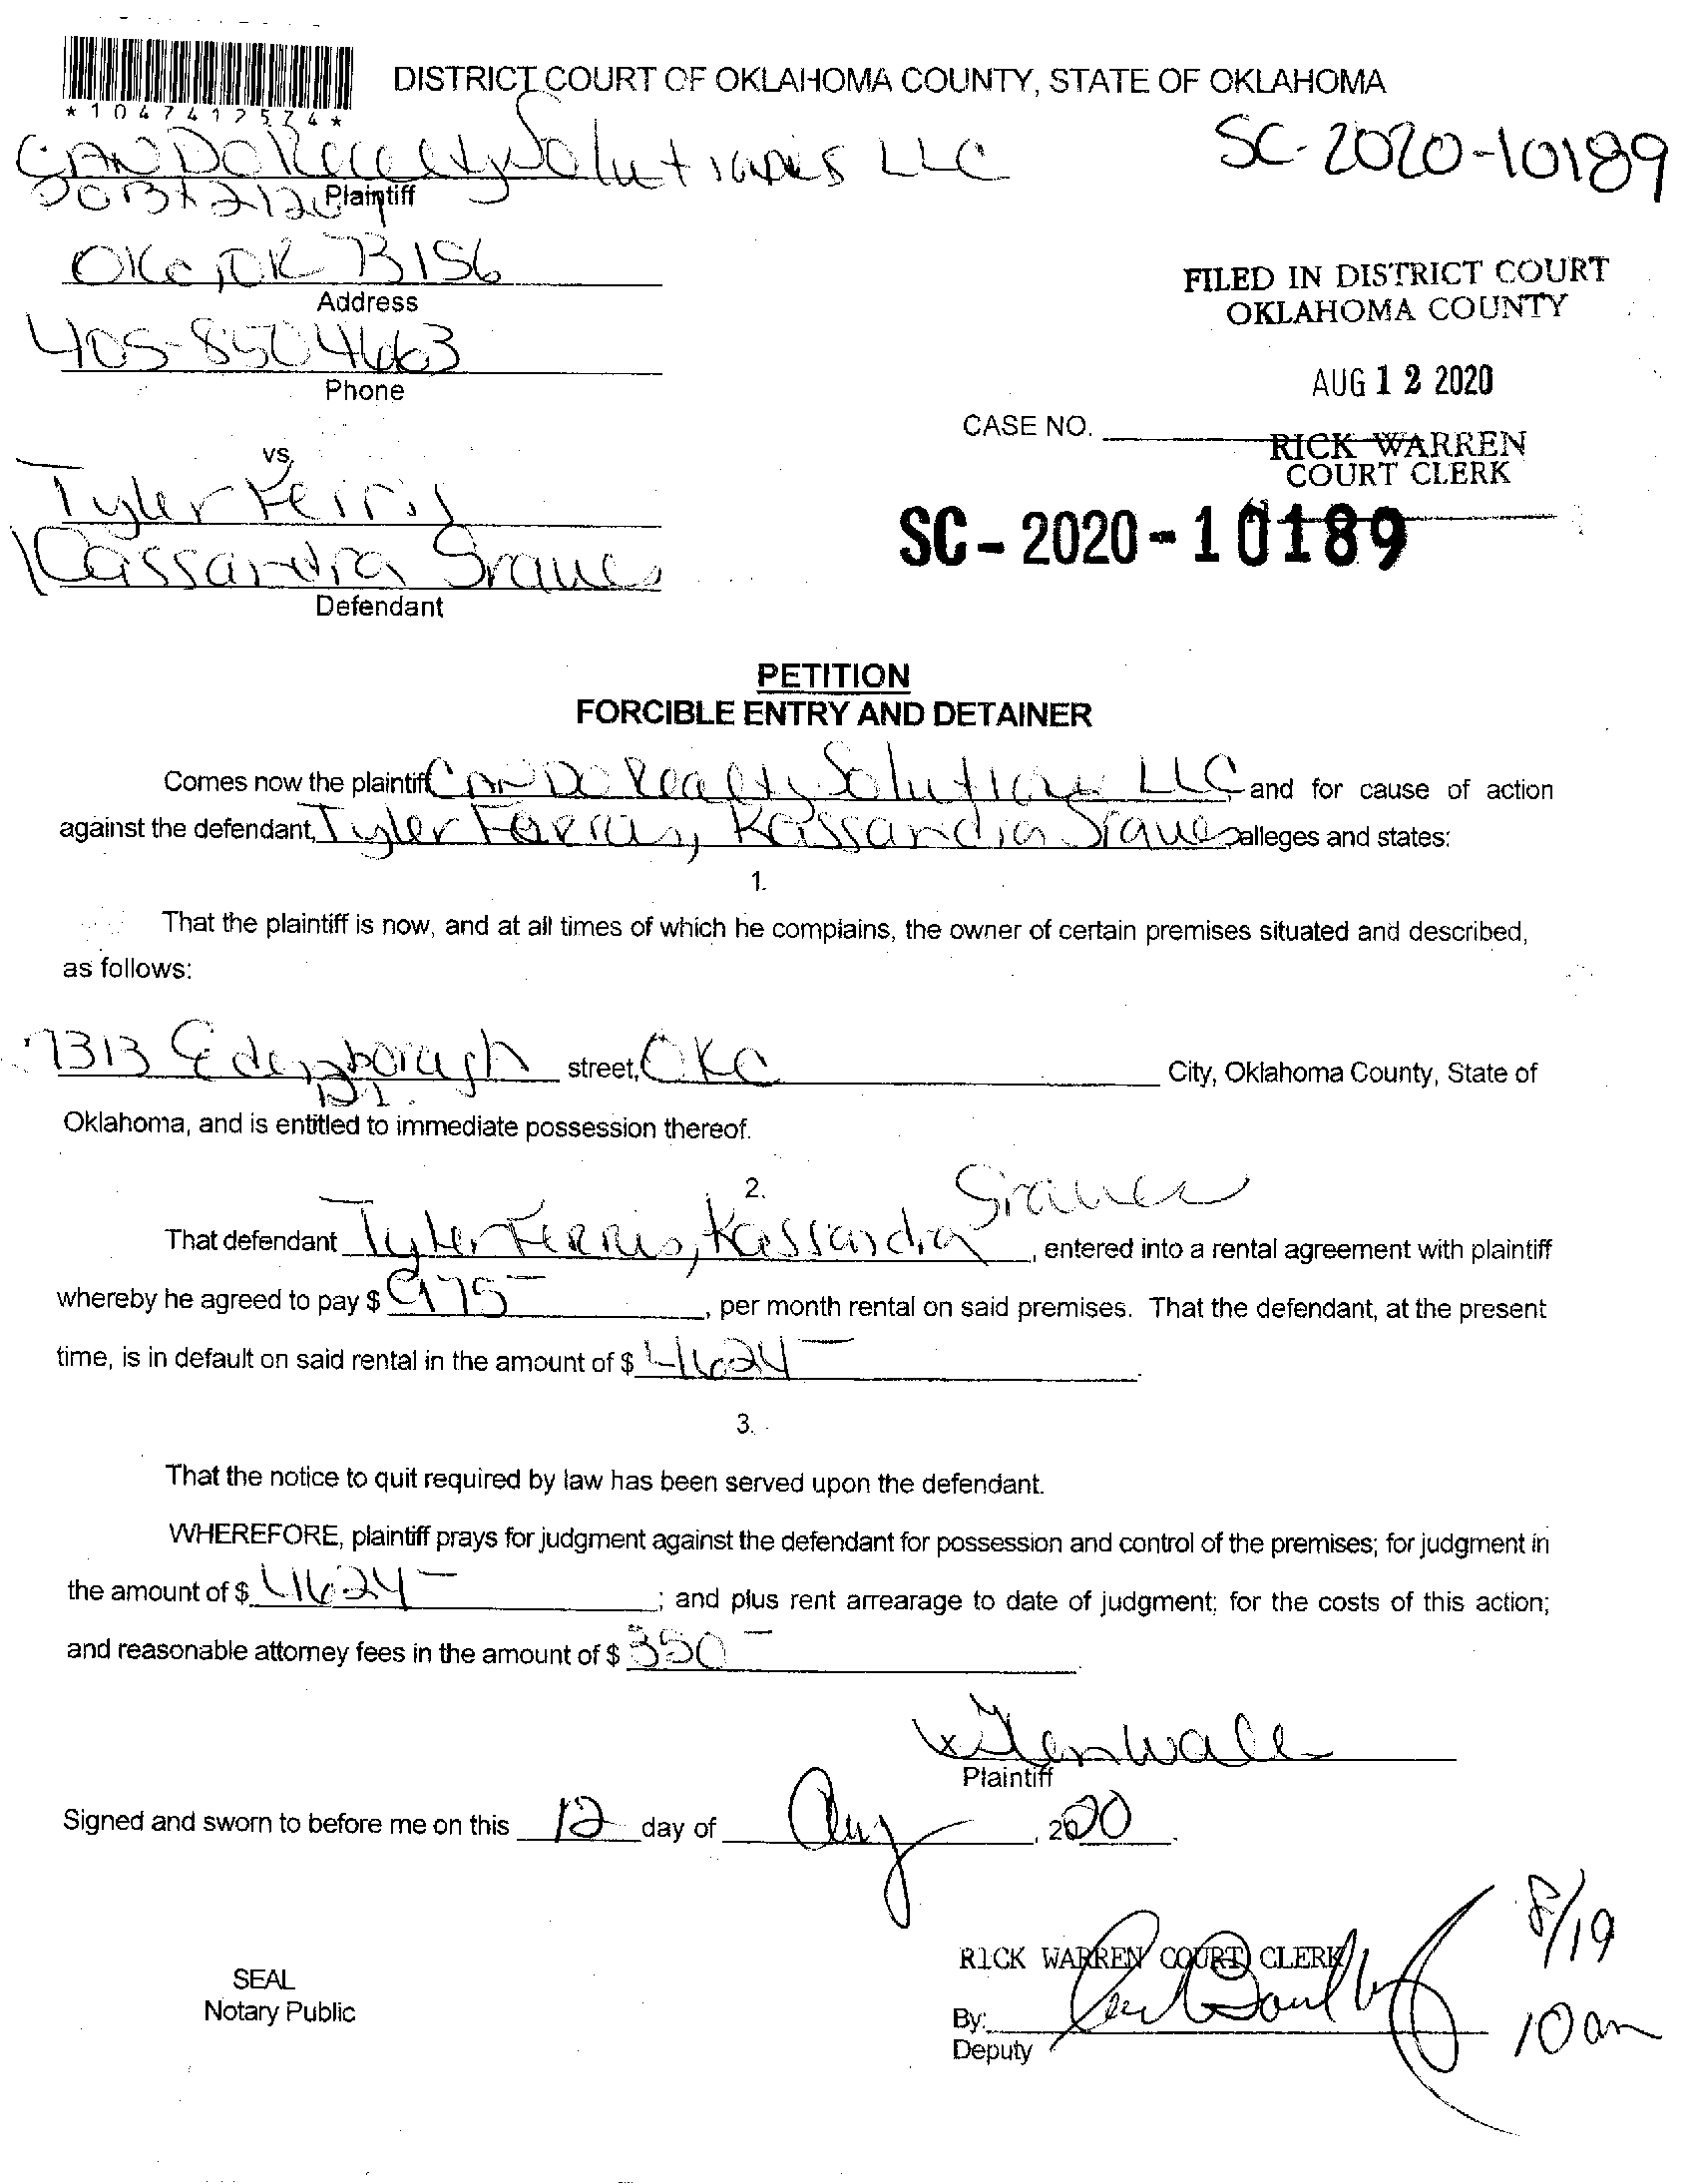 *1047412574*
DISTRICT COURT OF OKLAHOMA COUNTY, STATE OF OKLAHOMA
CAN DO Realty Solutions LLC
SC-2020-10189
Plaintiff
OKC, OK 73156
Address
FILED IN DISTRICT COURT
OKLAHOMA COUNTY
405-850 4663
Phone
AUG 12 2020
CASE NO.
RICK WARREN
COURT CLERK
vs.
Tyler Ferris
Kassandra Graves
Defendant
SC-2020-10189
PETITION
FORCIBLE ENTRY AND DETAINER
Comes now the plaintiff CAN DO Realty Solutions LLC and for cause of action
against the defendant, Tyler Ferris, Kassandra Graves alleges and states:
1.
That the plaintiff is now, and at all times of which he complains, the owner of certain premises situated and described,
as follows:
7313 Edenborough Dr. street, OKC City, Oklahoma County, State of
Oklahoma, and is entitled to immediate possession thereof.
2.
That defendant Tyler Ferris, Kassandra Graves, entered into a rental agreement with plaintiff
whereby he agreed to pay $ 975-, per month rental on said premises. That the defendant, at the present
time, is in default on said rental in the amount of $ 4624-.
3.
That the notice to quit required by law has been served upon the defendant.
WHEREFORE, plaintiff prays for judgment against the defendant for possession and control of the premises; for judgment in
the amount of $ 4624-; and plus rent arrearage to date of judgment; for the costs of this action;
and reasonable attorney fees in the amount of $ 350-.
x
Plaintiff
Signed and sworn to before me on this 12 day of Aug, 2020.
8/19
10 am
RICK WARREN COURT CLERK
SEAL
Notary Public
By:
Deputy